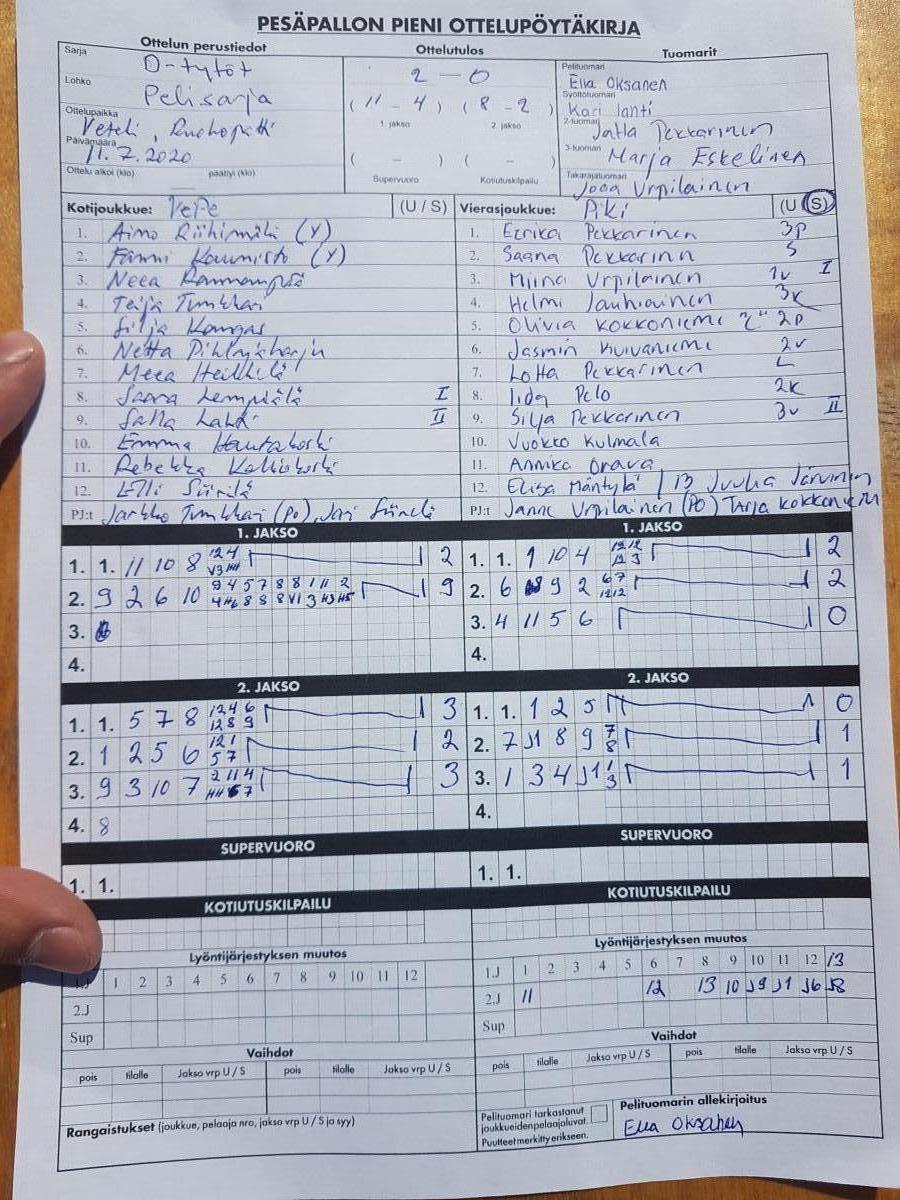 PESÄPALLON PIENI OTTELUPÖYTÄKIRJA
Ottelun perustiedot
Sarja D-tytöt
Lohko Pelisarja
Ottelupaikka Veteli,
Päivämäärä 11.7.2020
Ottelu alkoi (klo) päättyi (klo)
Ottelutulos
2 - 0
(11 - 4) (8 - 2)
1. jakso 2. jakso
( - ) ( - )
Supervuoro Kotiutuskilpailu
Tuomarit
Pelituomari Ella Oksanen
Syöttötuomari Kari lahti
2-tuomari Jatta Pekkarinen
3-tuomari Marja Eskelinen
Takarajatuomari Jooa Urpilainen
Kotijoukkue: VePe (U / S)
1. Aino Riihimäki (V)
2. Fanni Kaunisto (V)
3. Neea
4. Teija Tunkkari
5. Silja Kangas
6. Netta
7. Meea Heikkilä
8. Saana Lempiälä I
9. Salla Lahti II
10. Emma Hautakoski
11. Rebekka Kalliokoski
12. Lilli
PJ:t Jarkko Tunkkari (Po), Jari
Vierasjoukkue: PiKi (U / S)
1. Eerika Pekkarinen 3p
2. Saana Pekkarinn S
3. Miina Urpilainen 1v I
4. Helmi Jauhiainen 3k
5. Olivia Kokkonieme "L" 2p
6. Jasmin Kuivanieme 2v
7. Lotta Pekkarinen L
8. Iida Pelo 2k
9. Silja Pekkarinen 3v II
10. Vuokko Kulmala
11. Annika Orava
12. Elisa Mäntylä / 13 Juulia Järvinen
PJ:t Janne Urpilainen (PO) Tarja Kokkoniemi
1. JAKSO
1. 1. 11 10 8 12 4 2
2. 9 2 6 10 9 4 5 7 8 8 1 11 2 9
3.
4.
1. JAKSO
1. 1. 1 10 4 12 12 2
12 3
2. 6 9 2 6 7 2
12 12
3. 4 11 5 6 0
4.
2. JAKSO
1. 1. 5 7 8 12 4 6 3
12 8 9
2. 1 2 5 6 12 1 2
5 7
3. 9 3 10 7 2 11 4 3
4. 8
2. JAKSO
1. 1. 1 2 5 0
2. 7 J1 8 9 7 1
8
3. 1 3 4 J1 1 1
3
4.
SUPERVUORO
1. 1.
SUPERVUORO
1. 1.
KOTIUTUSKILPAILU
KOTIUTUSKILPAILU
Lyöntijärjestyksen muutos
1.J 1 2 3 4 5 6 7 8 9 10 11 12
2.J
Sup
Lyöntijärjestyksen muutos
1.J 1 2 3 4 5 6 7 8 9 10 11 12 13
2.J 11 12 13 10 J9 J1 J6 J8
Sup
Vaihdot
pois tilalle Jakso vrp U / S pois tilalle Jakso vrp U / S
Vaihdot
pois tilalle Jakso vrp U / S pois tilalle Jakso vrp U / S
Rangaistukset (joukkue, pelaaja nro, jakso vrp U / S ja syy)
Pelituomari tarkastanut
joukkueiden pelaajaluvat.
Puutteet merkitty erikseen.
Pelituomarin allekirjoitus
Ella Oksanen